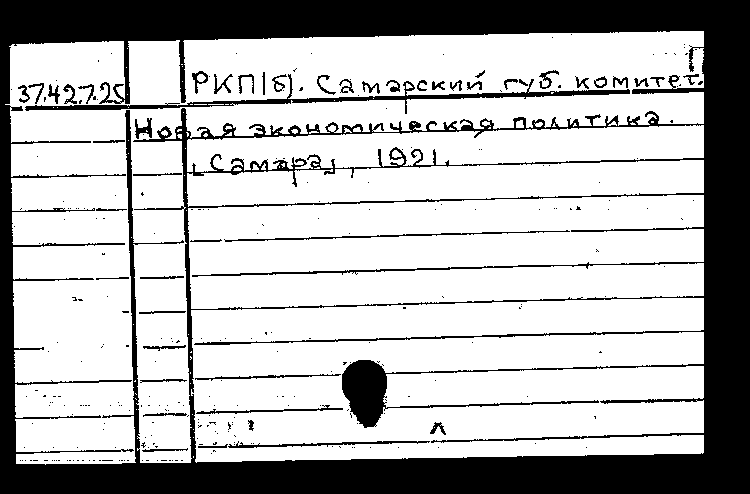 37.42.7.25 РКП(б). Самарский губ. комитет.
Новая экономическая политика.
[Самара], 1921.